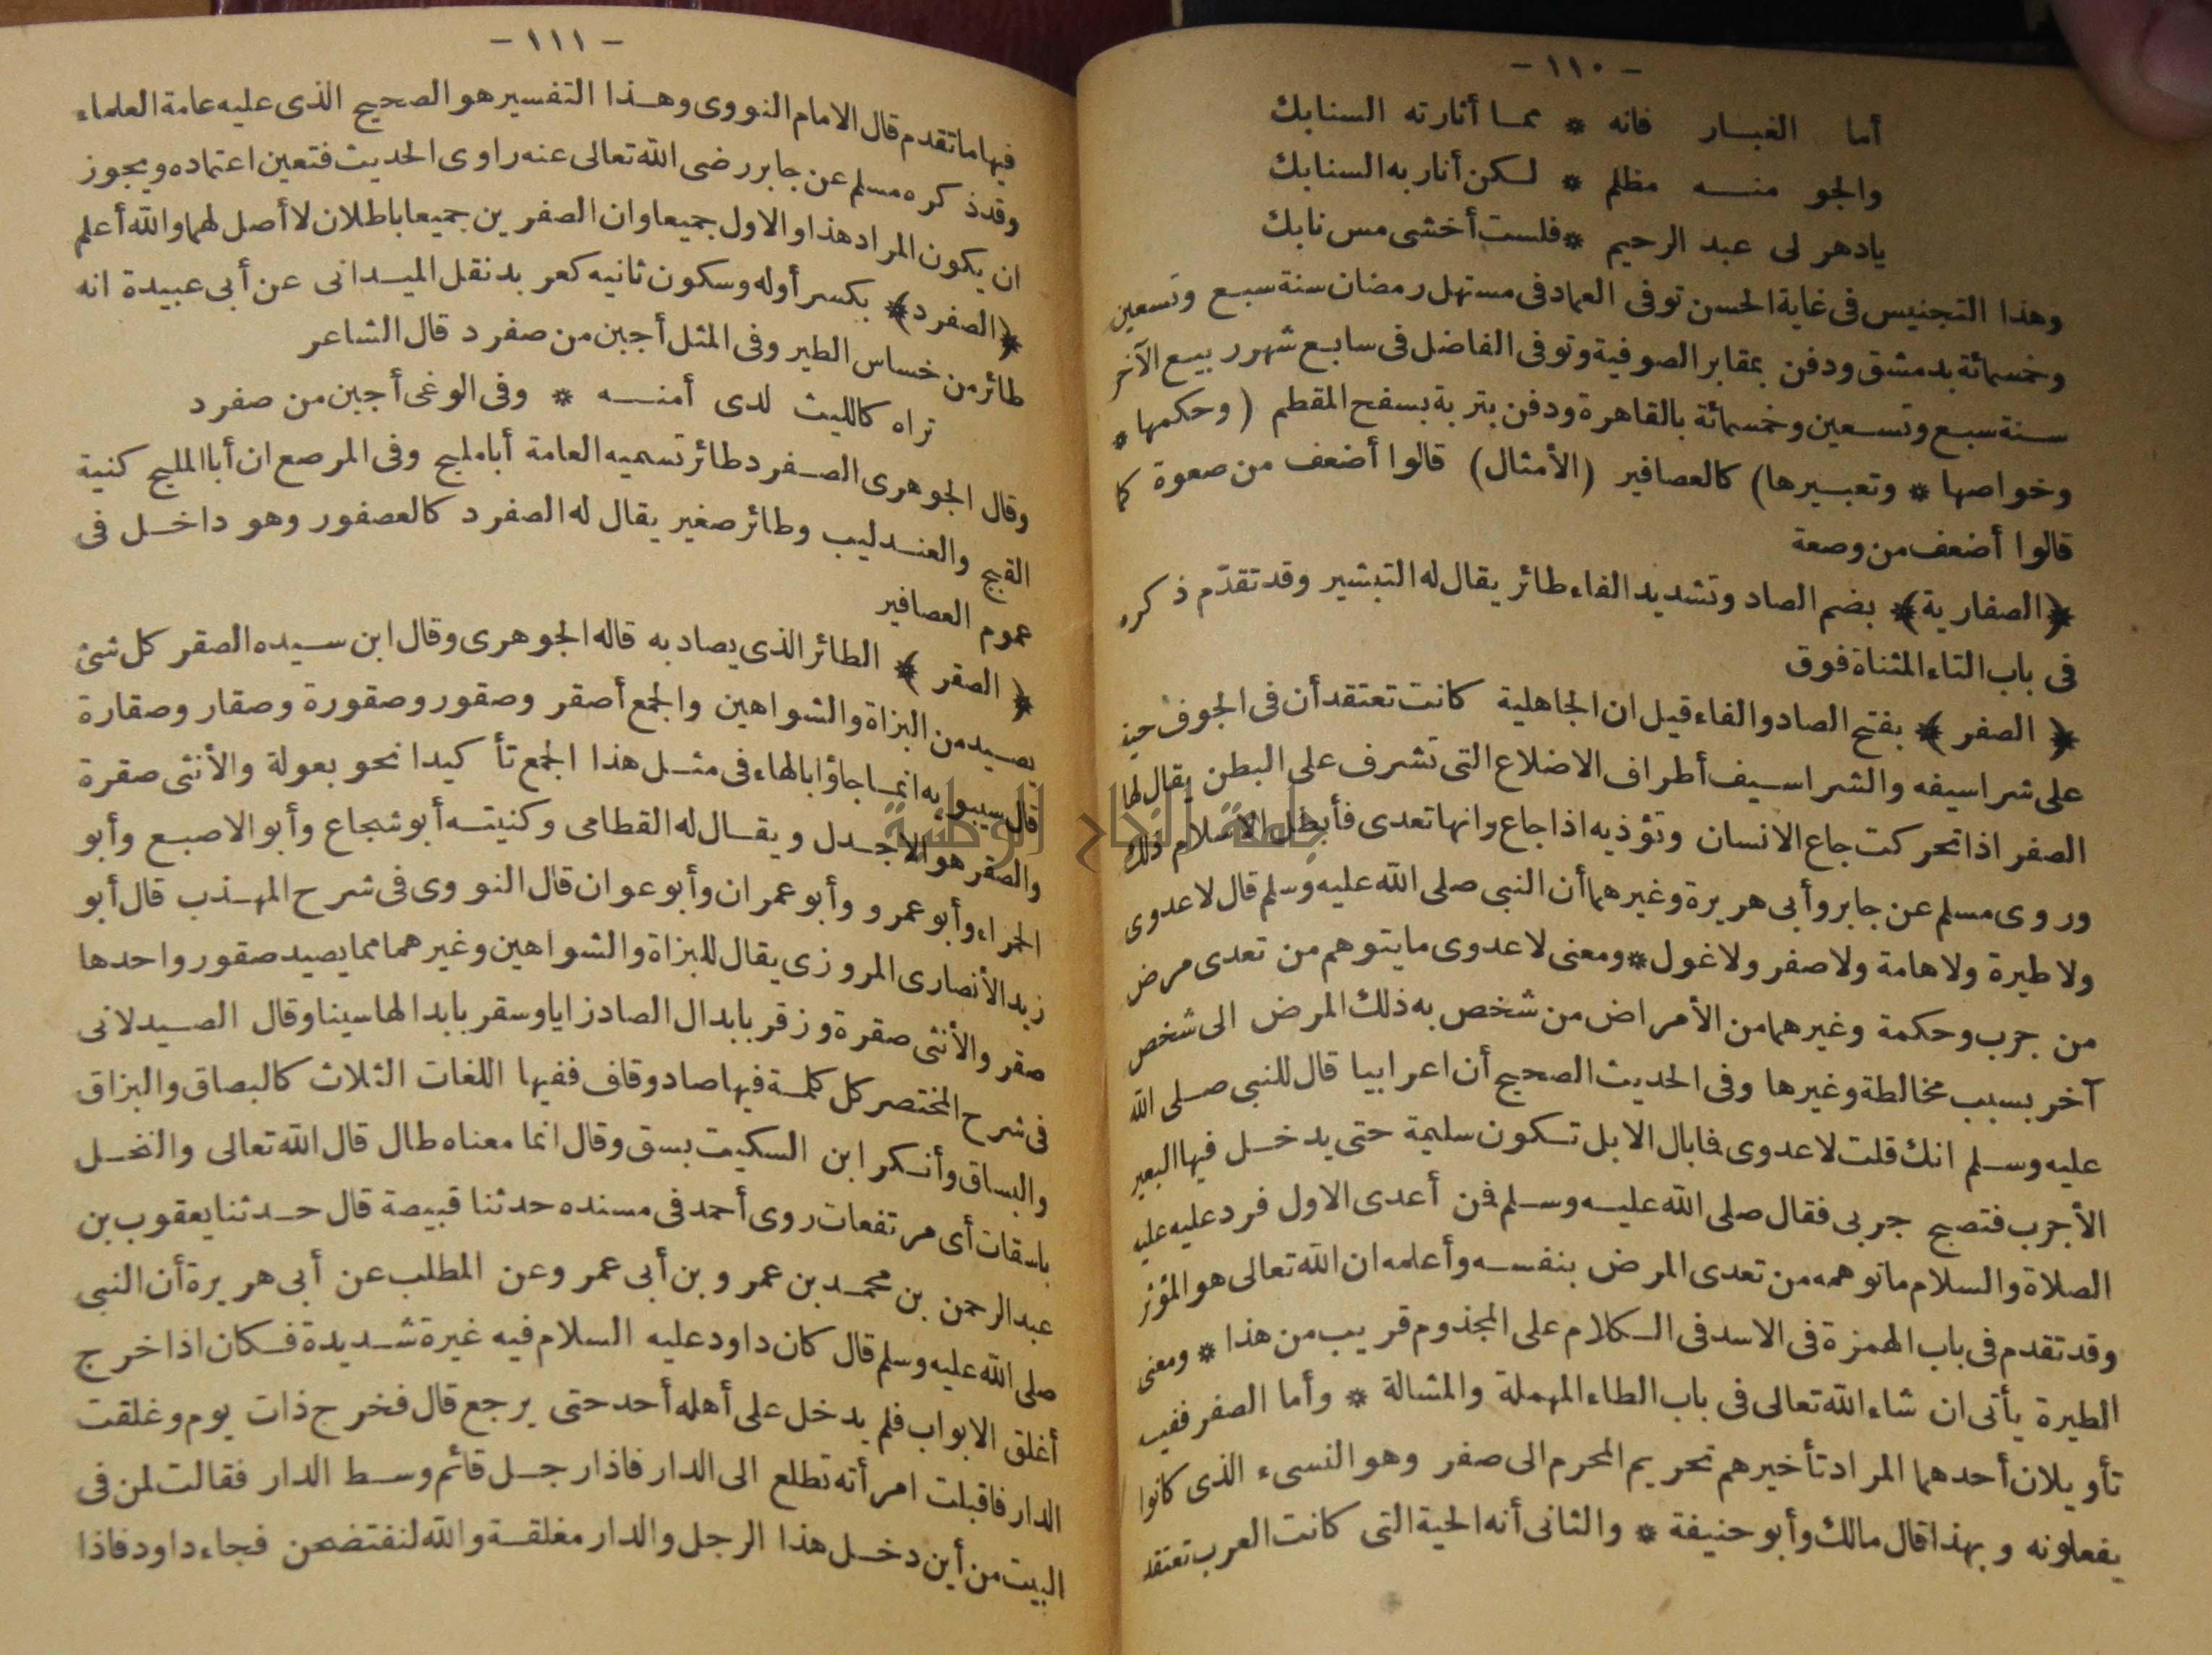 - ١١٠ -
أما الغبار فانه * مما أثارته السنابك
والجو منه مظلم * لكن أنار به السنابك
يادهر لى عبد الرحيم * فلست أخشى مس نابك
وهذا التجنيس فى غاية الحسن توفى العماد فى مستهل رمضان سنة سبع وتسعين
وخمسمائة بدمشق ودفن بمقابر الصوفية وتوفى الفاضل فى سابع شهر ربيع الآخر
سنة سبع وتسعين وخمسمائة بالقاهرة ودفن بتربة بسفح المقطم (وحكمها *
وخواصها * وتعبيرها) كالعصافير (الأمثال) قالوا أضعف من صعوة كما
قالوا أضعف من وصعة
﴿الصفارية﴾ بضم الصاد وتشديد الفاء طائر يقال له التبشير وقد تقدّم ذكره
فى باب التاء المثناة فوق
﴿الصفر﴾ بفتح الصاد والفاء قيل ان الجاهلية كانت تعتقد أن فى الجوف حية
على شراسيفه والشراسيف أطراف الاضلاع التى تشرف على البطن يقال لها
الصفر اذا تحركت جاع الانسان وتؤذيه اذا جاع وانها تعدى فأبطل الاسلام ذلك
وروى مسلم عن جابر وأبى هريرة وغيرهما أن النبى صلى الله عليه وسلم قال لا عدوى
ولا طيرة ولا هامة ولا صفر ولا غول * ومعنى لا عدوى ما يتوهم من تعدى مرض
من جرب وحكمة وغيرهما من الأمراض من شخص به ذلك المرض الى شخص
آخر بسبب مخالطة وغيرها وفى الحديث الصحيح أن اعرابيا قال للنبى صلى الله
عليه وسلم انك قلت لا عدوى فما بال الابل تكون سليمة حتى يدخل فيها البعير
الأجرب فتصبح جربى فقال صلى الله عليه وسلم فمن أعدى الاول فرد عليه عليه
الصلاة والسلام ما توهمه من تعدى المرض بنفسه وأعلمه ان الله تعالى هو المؤثر
وقد تقدم فى باب الهمزة فى الاسد فى الكلام على المجذوم قريب من هذا * ومعنى
الطيرة يأتى ان شاء الله تعالى فى باب الطاء المهملة والمشالة * وأما الصفر ففيه
تأويلان أحدهما المراد تأخيرهم تحريم المحرم الى صفر وهو النسىء الذى كانوا
يفعلونه وبهذا قال مالك وأبو حنيفة * والثانى أنه الحية التى كانت العرب تعتقد
- ١١١ -
فيها ما تقدم قال الامام النووى وهذا التفسير هو الصحيح الذى عليه عامة العلماء
وقد ذكره مسلم عن جابر رضى الله تعالى عنه راوى الحديث فتعين اعتماده ويجوز
ان يكون المراد هذا والاول جميعا وان الصفرين جميعا باطلان لا أصل لهما والله أعلم
﴿الصفرد﴾ بكسر أوله وسكون ثانيه كعربد نقل الميدانى عن أبى عبيدة انه
طائر من خساس الطير وفى المثل أجبن من صفرد قال الشاعر
تراه كالليث لدى أمنه * وفى الوغى أجبن من صفرد
وقال الجوهرى الصفرد طائر تسميه العامة أبا مليح وفى المرصع ان أبا المليح كنية
القبج والعندليب وطائر صغير يقال له الصفرد كالعصفور وهو داخل فى
عموم العصافير
﴿الصقر﴾ الطائر الذى يصاد به قاله الجوهرى وقال ابن سيده الصقر كل شئ
يصيد من البزاة والشواهين والجمع أصقر وصقور وصقورة وصقار وصقارة
قال سيبويه انما جاؤا بالهاء فى مثل هذا الجمع تأكيدا نحو بعولة والأنثى صقرة
والصقر هو الأجدل ويقال له القطامى وكنيته أبو شجاع وأبو الاصبع وأبو
الحمراء وأبو عمرو وأبو عمران وأبو عوان قال النووى فى شرح المهذب قال أبو
زيد الأنصارى المروزى يقال للبزاة والشواهين وغيرهما مما يصيد صقور واحدها
صقر والأنثى صقرة وزقر بابدال الصاد زايا وسقر بابدالها سينا وقال الصيدلانى
فى شرح المختصر كل كلمة فيها صاد وقاف ففيها اللغات الثلاث كالبصاق والبزاق
والبساق وأنكر ابن السكيت بسق وقال انما معناه طال قال الله تعالى والنخل
باسقات أى مرتفعات روى أحمد فى مسنده حدثنا قبيصة قال حدثنا يعقوب بن
عبد الرحمن بن محمد بن عمرو بن أبى عمر وعن المطلب عن أبى هريرة أن النبى
صلى الله عليه وسلم قال كان داود عليه السلام فيه غيرة شديدة فكان اذا خرج
أغلق الابواب فلم يدخل على أهله أحد حتى يرجع قال فخرج ذات يوم وغلقت
الدار فاقبلت امرأته تطلع الى الدار فاذا رجل قائم وسط الدار فقالت لمن فى
البيت من أين دخل هذا الرجل والدار مغلقة والله لنفتضحن فجاء داود فاذا
جامعة النجاح الوطنية